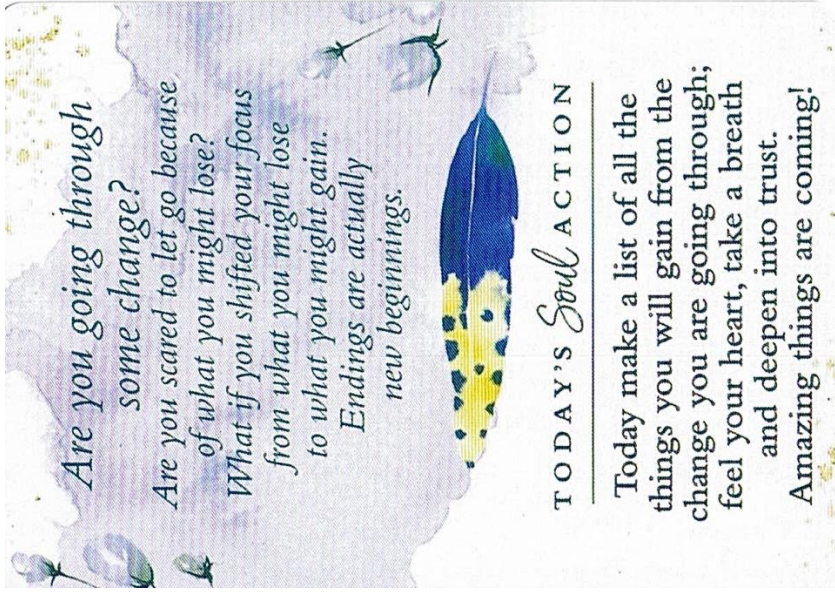 Are you going through
some change?
Are you scared to let go because
of what you might lose?
What if you shifted your focus
from what you might lose
to what you might gain.
Endings are actually
new beginnings.
TODAY'S Soul ACTION
Today make a list of all the
things you will gain from the
change you are going through;
feel your heart, take a breath
and deepen into trust.
Amazing things are coming!